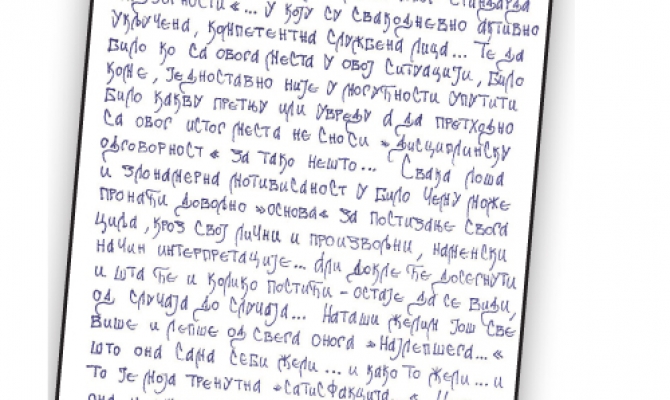 стандарда
у коју су свакодневно активно
укључена, компетентна службена лица... Те да
било ко са овога места у овој ситуацији, било
коме, једноставно није у могућности упутити
било какву претњу или увреду а да претходно
са овог истог места не сноси »дисциплинску
одговорност« за тако нешто... Свака лоша
и злонамерна мотивисаност у било чему може
пронаћи довољно »основа« за постизање свога
циља, кроз свој лични и произвољни, наменски
начин интерпретације... Али докле ће досегнути
и шта ће и колико постићи - остаје да се види,
од случаја до случаја... Наташи желим још све
више и лепше од свега онога »најлепшега...«
што она сама себи жели... и како то жели... и
то је моја тренутна »сатисфакција...«
она